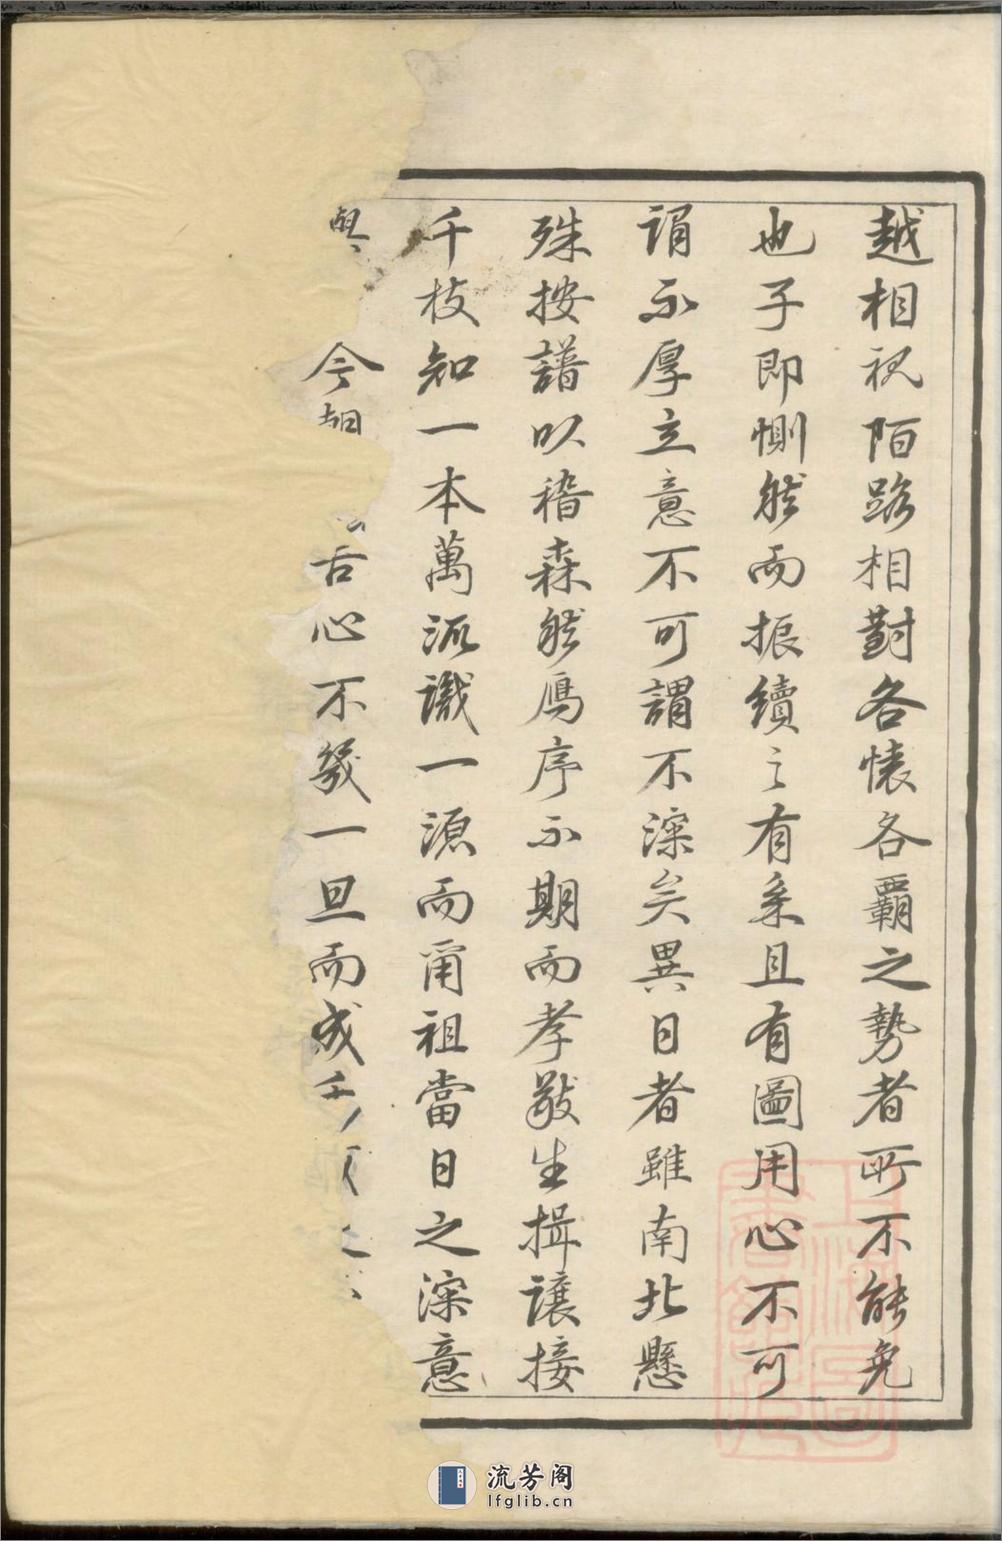 越相視陌路相對各懷各霸之勢者所不能免
也予即惻然而振續之有系且有圖用心不可
謂不厚立意不可謂不深矣異日者雖南北懸
殊按譜以稽森然鴈序不期而孝敬生揖讓接
千枝知一本萬派識一源而甯祖當日之深意
與今朝舌心不幾一旦而成
上海圖書館藏
流芳阁
lfglib.cn